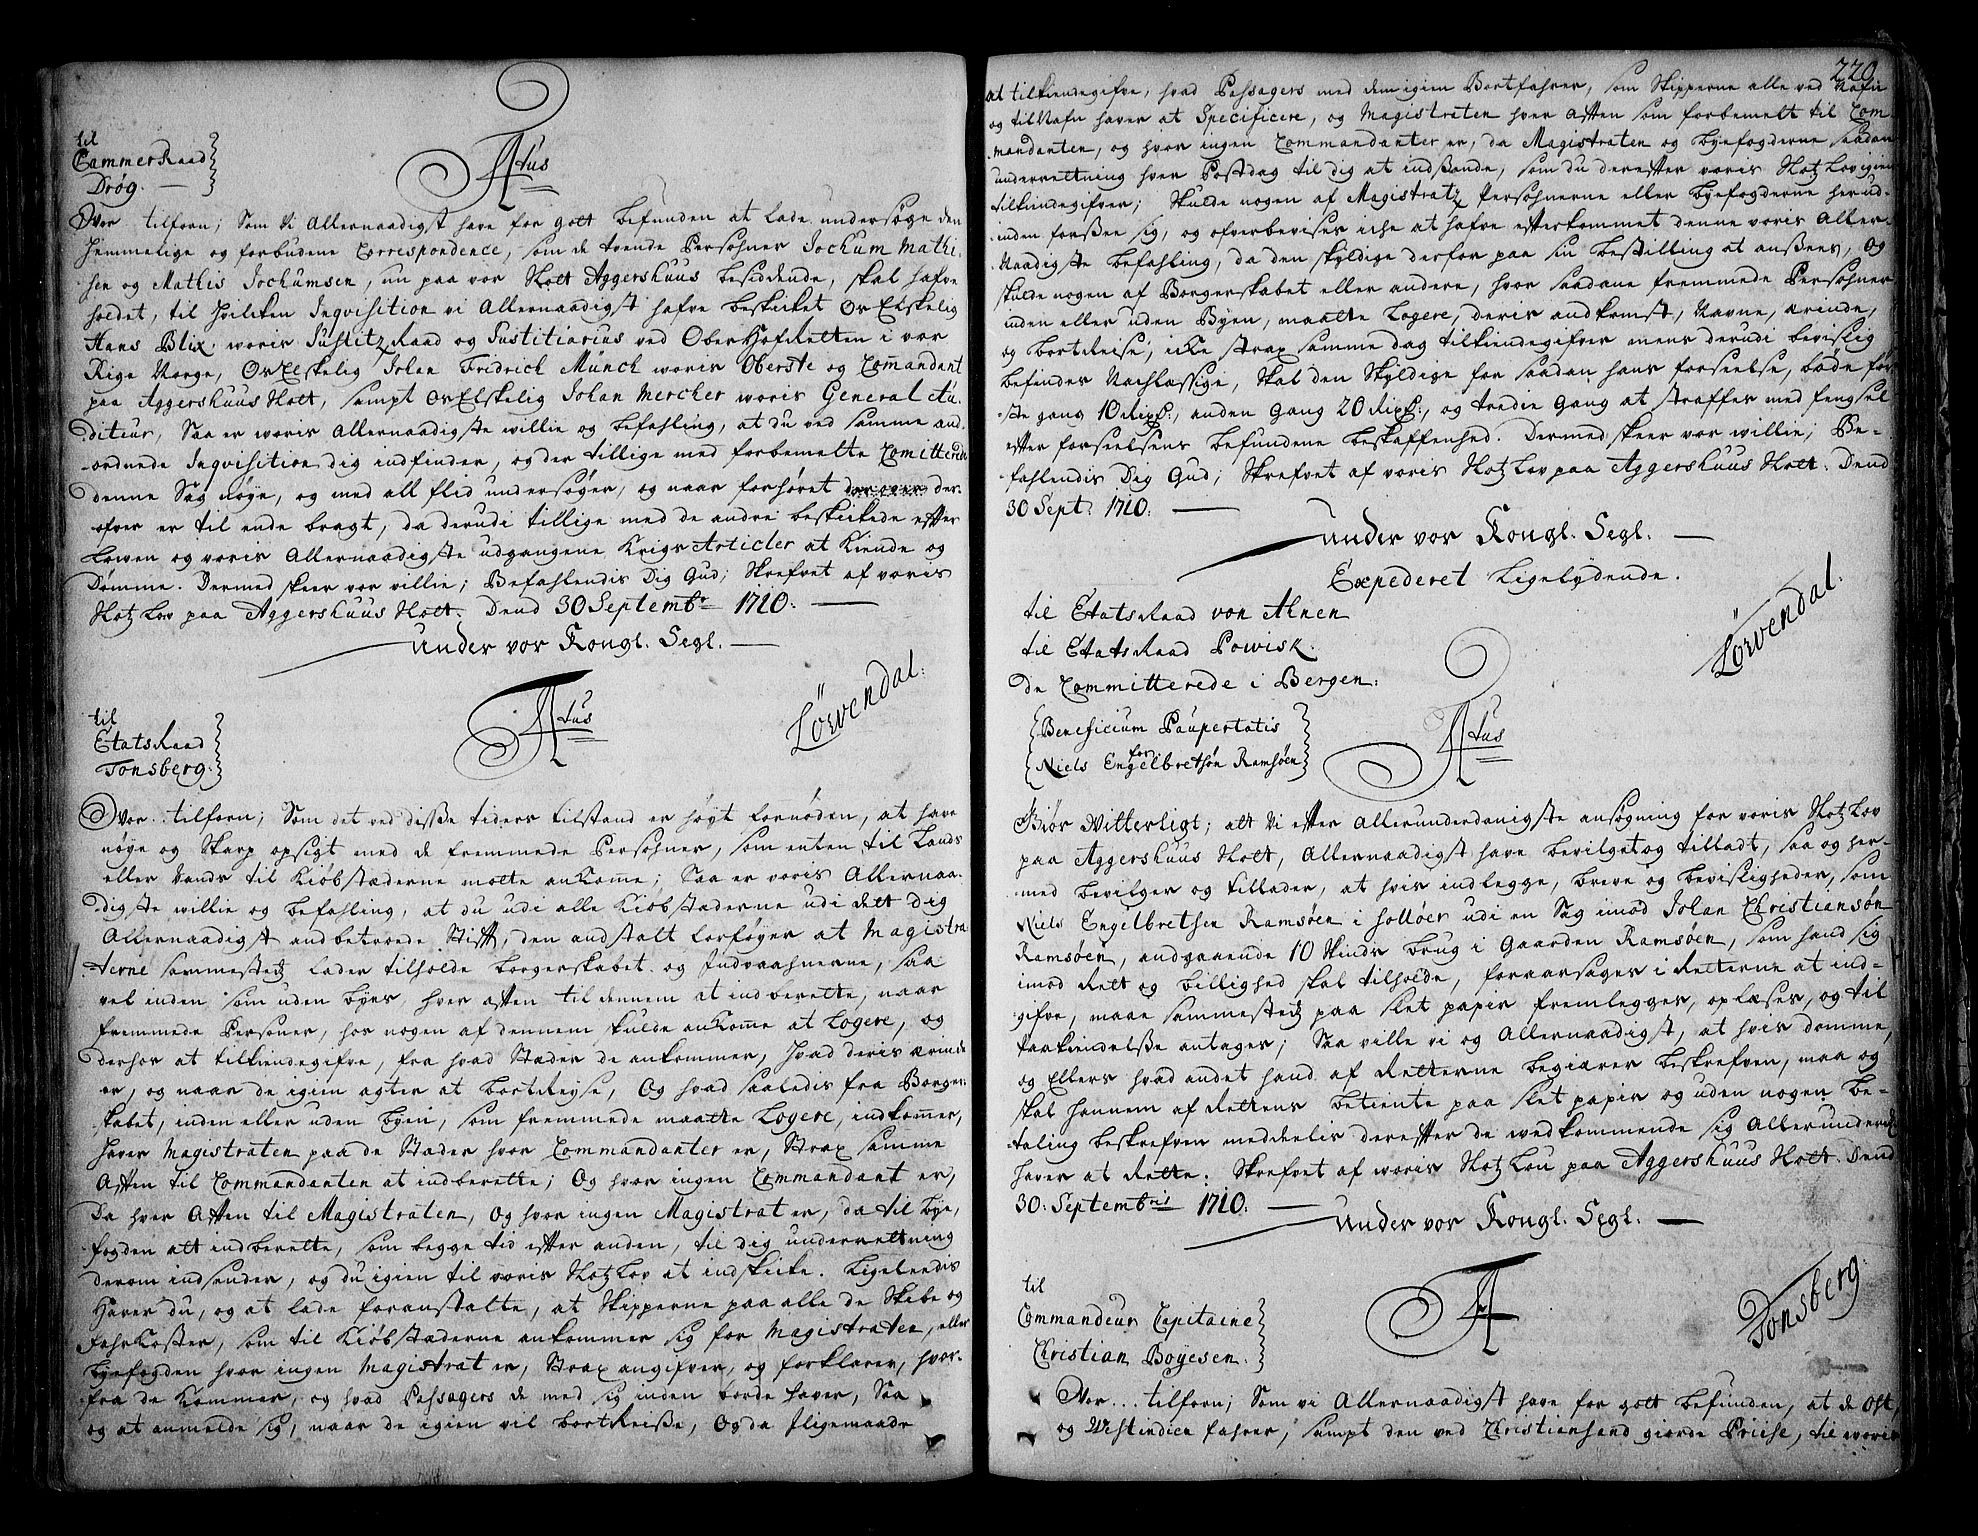 til
CammerRaad
Drøg. —
Atus
Vor tilforn; Som Vi Allernaadigst have for gott befunden at lade undersøge den
hemmelige og forbudene Correspondence, som de trende Persohner Jochum Mathi-
sen og Mathis Jochumsen, nu paa vor Slott Aggershuus besiddende, skal hafve
holdet, til hvilken Inqvisition vi Allernaadigst hafve beskicket Os Elskelig
Hans Blix voris Justitz Raad og Justitiarius ved OberHofRetten i vor
Rige Norge, Os Elskelig Johan Fridrich Münch voris Oberste og Commandant
paa Aggershuus Slott, sampt Os Elskelig Johan Mercher voris General Au-
diteur, Saa er voris Allernaadigste willie og befahling, at du ved samme an-
ordnede Inqvisition dig indfinder, og der tillige med forbemelte Comitterede
denne Sag nøye, og med all flid undersøger, og naar forhøret der-
ofver er til ende bragt, da derudi tillige med de andre beskickede efter
Lowen og voris Allernaadigste udgangene Krigs Articler at Kiende og
Dømme. Dermed skeer vor villie; Befahlendis Dig Gud; Skrefvet af voris
Slotz Lov paa Aggershuus Slott. Dend 30 Septembr 1710. —
Under vor Kongl. Segl. —
Løvendal.
til
EtatsRaad
Tonsberg.
Atus
Vor.. tilforn; Som det ved disse tiders tilstand er høyt fornøden, at have
nøye og Skarp opsigt med de fremmede Persohner, som enten til Lands
eller Vands til Kiøbstæderne motte ankomme; Saa er voris Allernaa-
digste willie og befahling, at du udi alle Kiøbstæderne udi det dig
Allernaadigst anbetroede Stift, den anstalt forføyer at Magistra-
terne sammestedz lader tilholde borgerskabet og Indvaahnerne, saa
vel inden som uden byes, hver aften til dennem at indberette, naar
fremmede Persohner, hos nogen af dennem skulde ankomme at Logere, og
derhos at tilkiendegifve, fra hvad Stæder de ankommer, hvad deris ærinde
er, og naar de igien agter at bortReyse, Og hvad saaledis fra Borger-
skabet, inden eller uden byen, som fremmede maatte Logere, indkommer,
haver Magistraten paa de Stæder hvor Commandanter er, Strax samme
Aften til Commandanten at indberette; Og hvor ingen Commandant er,
Da hver Aften til Magistraten, og hvor ingen Magistrat er, da til bye-
fogden alt indberette, som begge tid efter anden, til dig underrettning
derom indsender, og du igien til voris Slotz Lov at indskicke. Ligeledis
haver du, og at lade foranstalte, at Skipperne paa alle de Skibe og
Fahrkoster, som til Kiøbstæderne ankommer sig for Magistraten, eller
byefogden hvor ingen Magistrat er, Strax angifver, og forklarer, hvor-
fra de kommer, og hvad Passagers de med sig inden borde haver, Saa
og at anmelde sig, naar de igien vil bortReise, Og da iligemaade
220.
at tilkiendegifve, hvad Passagers med dem igien Bortfahrer, som Skipperne alle ved Nafn
og tilNafn haver at Specificere, og Magistraten hver aften som forbemelt til Com-
mandanten, og hvor ingen Commandanter er, da Magistraten og byefogderne saadan
underrettning hver Postdag til dig at indsende, som du derefter voris Slotz Lov igien
tilkiendegifver; Skulde nogen af Magistratz Persohnerne eller byefogderne herud-
inden forsee sig, og ofverbevises icke at hafve efterkommet denne voris Aller-
Naadigste befahling, da den skyldige derfor paa sin bestilling at ansees, Og
skulde nogen af Borgerskabet eller andere, hvor saadane fremmede Persohner
inden eller uden Byen, maatte Logere, deris ankomst, Navne, ærinde,
og bortReise, icke strax samme dag tilkiendegifver mens derudi bevislig
befindes Nachlæssige, Skal den Skyldige for saadan hans forseelse, bøde før-
ste gang 10 Rixd., anden Gang 20 Rixd., og tredie Gang at straffes med fengsel
efter forseelsens befundene beskaffenhed. Dermed skeer vor willie; Be-
fahlendis Dig Gud; Skrefvet af voris Slotz Lov paa Aggershuus Slott. Dend
30 Sept. 1710. —
Under vor Kongl. Segl. —
Expederet Ligelydende.
Løvendal.
til EtatsRaad von Ahnen
til EtatsRaad Powisk.
de Committerede i Bergen.
Beneficium Paupertatis
for
Niels Engelbretsøn Ramsøen
Atus
Giør Witterligt; att Vi efter Allerunderdanigste ansøgning for voris Slotz Lov
paa Aggershuus Slott, Allernaadigst have bevilget og tilladt, saa og her-
med bevilger og tillader, at hvis indlegge, breve og bevisligheder, som
Niels Engelbretsen Ramsøen i Solløer udi en Sag imod Johan Christiansøn
Ramsøen, angaaende 10 Skinds brug i Gaarden Ramsøen, som hand sig
imod Rett og billighed skal tilholde, foraarsages i Retterne at ind-
gifve, maae sammestedz paa slet papir fremlegges, oplæses, og til
paakiendelse antages; Saa ville vi og Allernaadigst, at hvis domme,
og Ellers hvad andet hand af Retterne begiærer beskrefven, maa og
skal hannem af Rettens betiente paa slet papir og uden nogen be-
taling beskrefven meddeelis derefter de wedkommende sig Allerunderd.
haver at Rette. Skrefvet af woris Slotz Lov paa Aggershuus Slott. Dend
30. Septembris 1710. —
Under vor Kongl. Segl. —
Tonsberg.
til
Commandeur Capitaine
Christian Boyesen.
A
Vor... tilforn; Som vi Allernaadigst have for gott befunden, at de Ost-
og Westindien fahrer, sampt den ved Christiansand giorde Priise, til woris